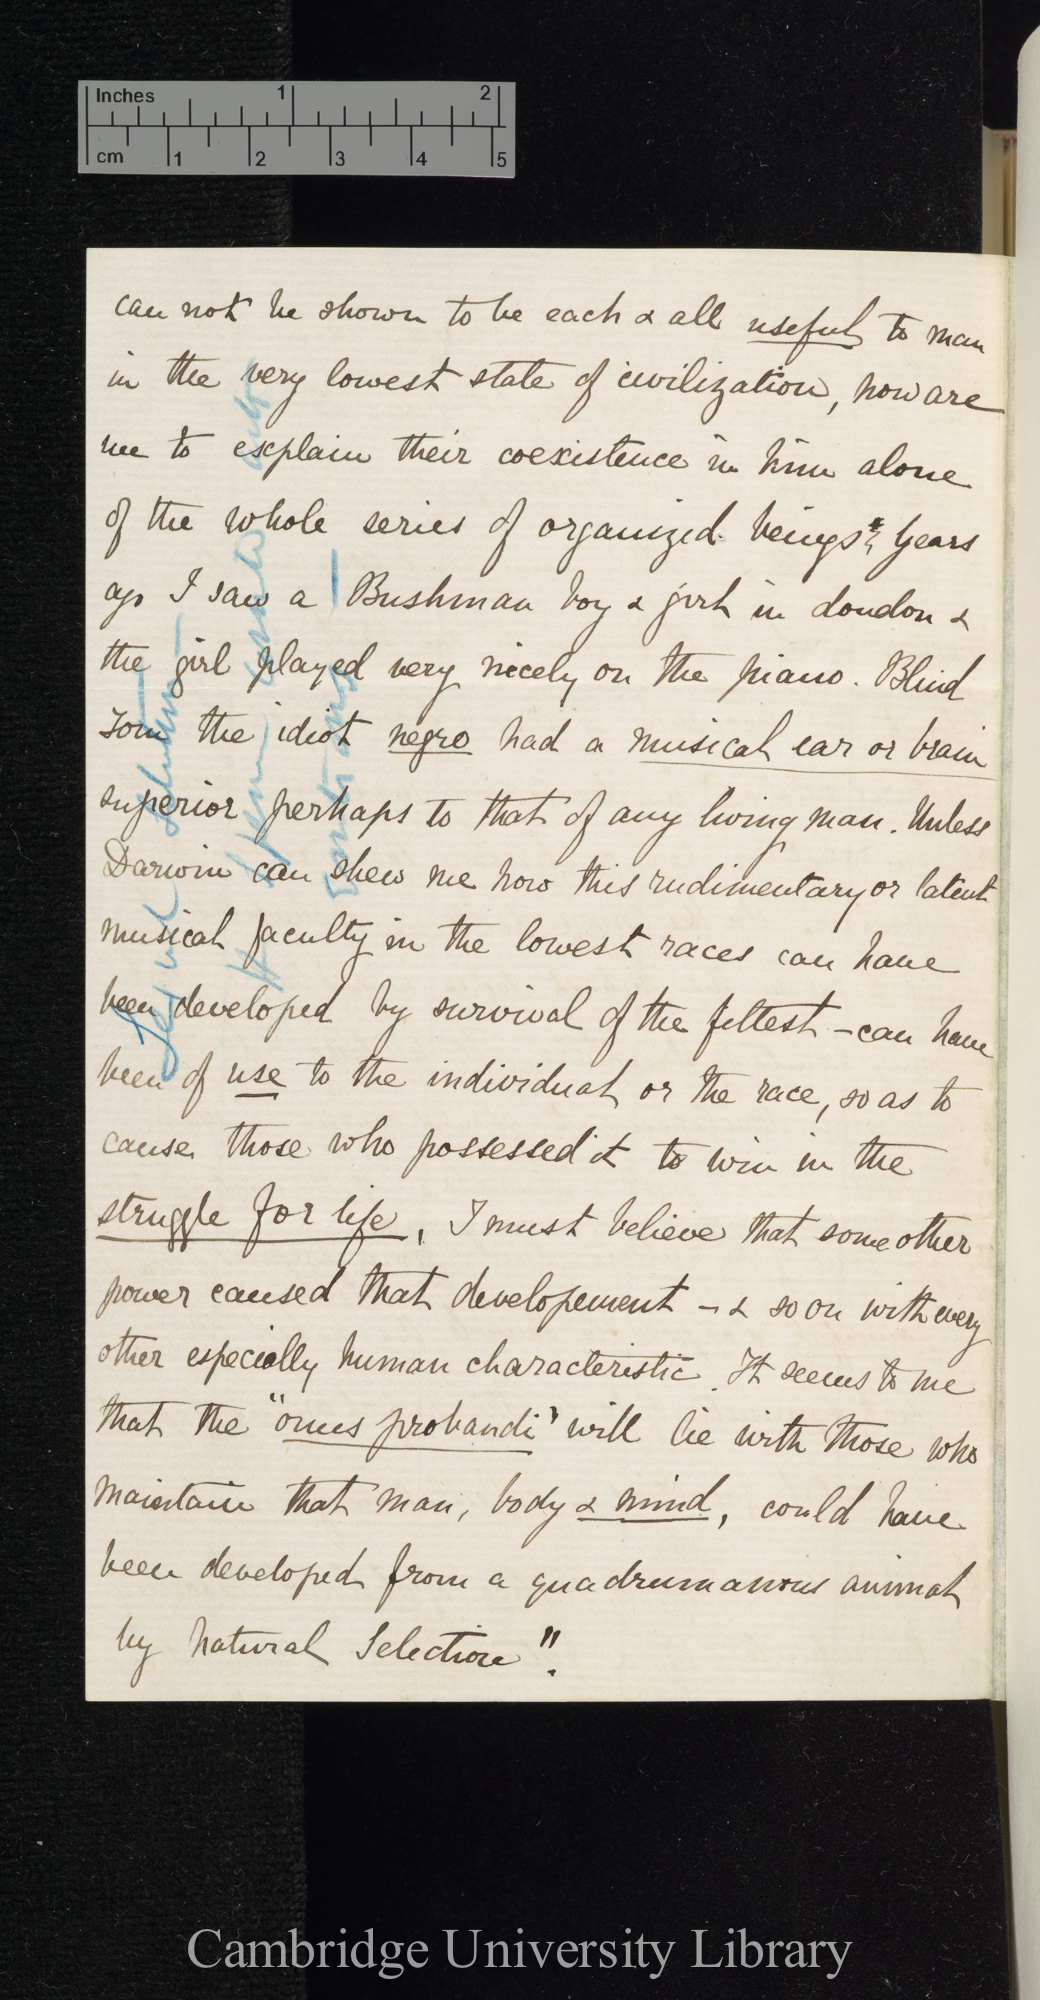 Inches 1 2
cm 1 2 3 4 5
can not be shown to be each & all useful to man
in the very lowest state of civilization, how are
we to explain their coexistence in him alone
of the whole series of organized beings? Years
ago I saw a Bushman boy & girl in London &
the girl played very nicely on the piano. Blind
Tom the idiot negro had a musical ear or brain
superior perhaps to that of any living man. Unless
Darwin can shew me how this rudimentary or latent
musical faculty in the lowest races can have
been developed by survival of the fittest – can have
been of use to the individual or the race, so as to
cause those who possessed it to win in the
struggle for life, I must believe that some other
power caused that developement – & so on with every
other especially human characteristic. It seems to me
that the "onus probandi" will lie with those who
maintain that man, body & mind, could have
been developed from a quadrumanous animal
by Natural Selection".
Cambridge University Library